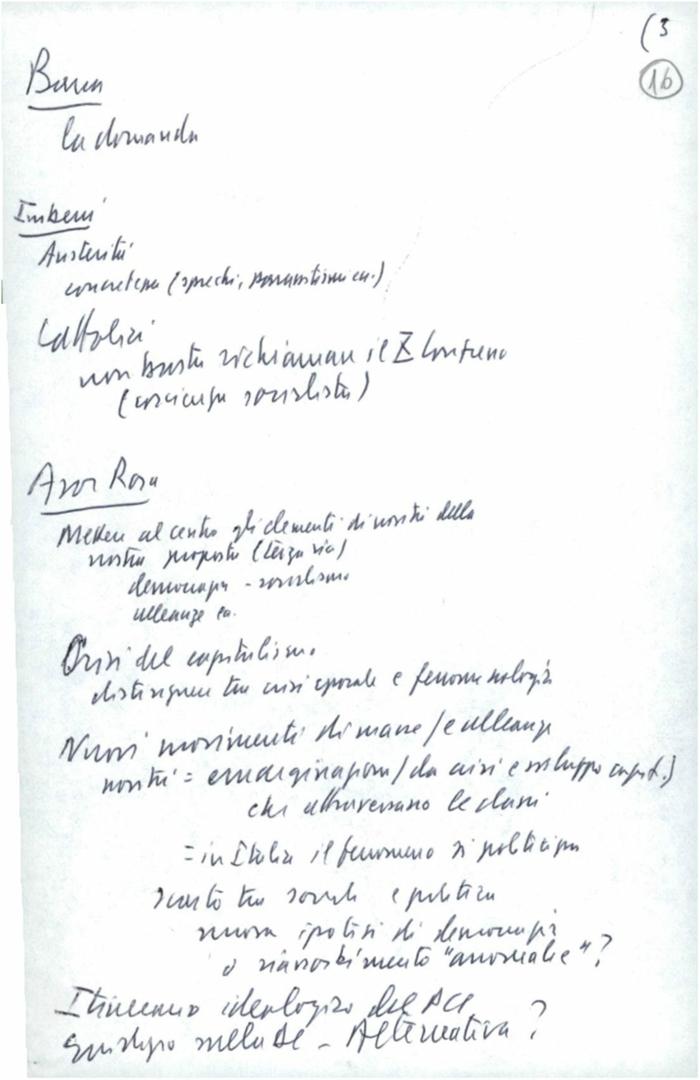 (3
16
Barca
la domanda
Imbeni
Austerità
concretezza (sprechi, parassitismi ecc.)
Cattolici
non basta richiamare il X Congresso
(coscienza socialista)
Asor Rosa
Mettere al centro gli elementi di novità della
nostra proposta (terza via)
democrazia - socialismo
alleanze ecc.
Crisi del capitalismo
distinguere tra crisi epocale e fenomenologia
Nuovi movimenti di massa / e alleanze
novità = emarginazione / da crisi e sviluppo capit.)
che attraversano le classi
= in Italia il fenomeno si politicizza
scarto tra sociale e politica
nuova ipotesi di democrazia
o riassorbimento "anomalie"?
Itinerario ideologico del PCI
giudizio sulla DC - Alternativa?